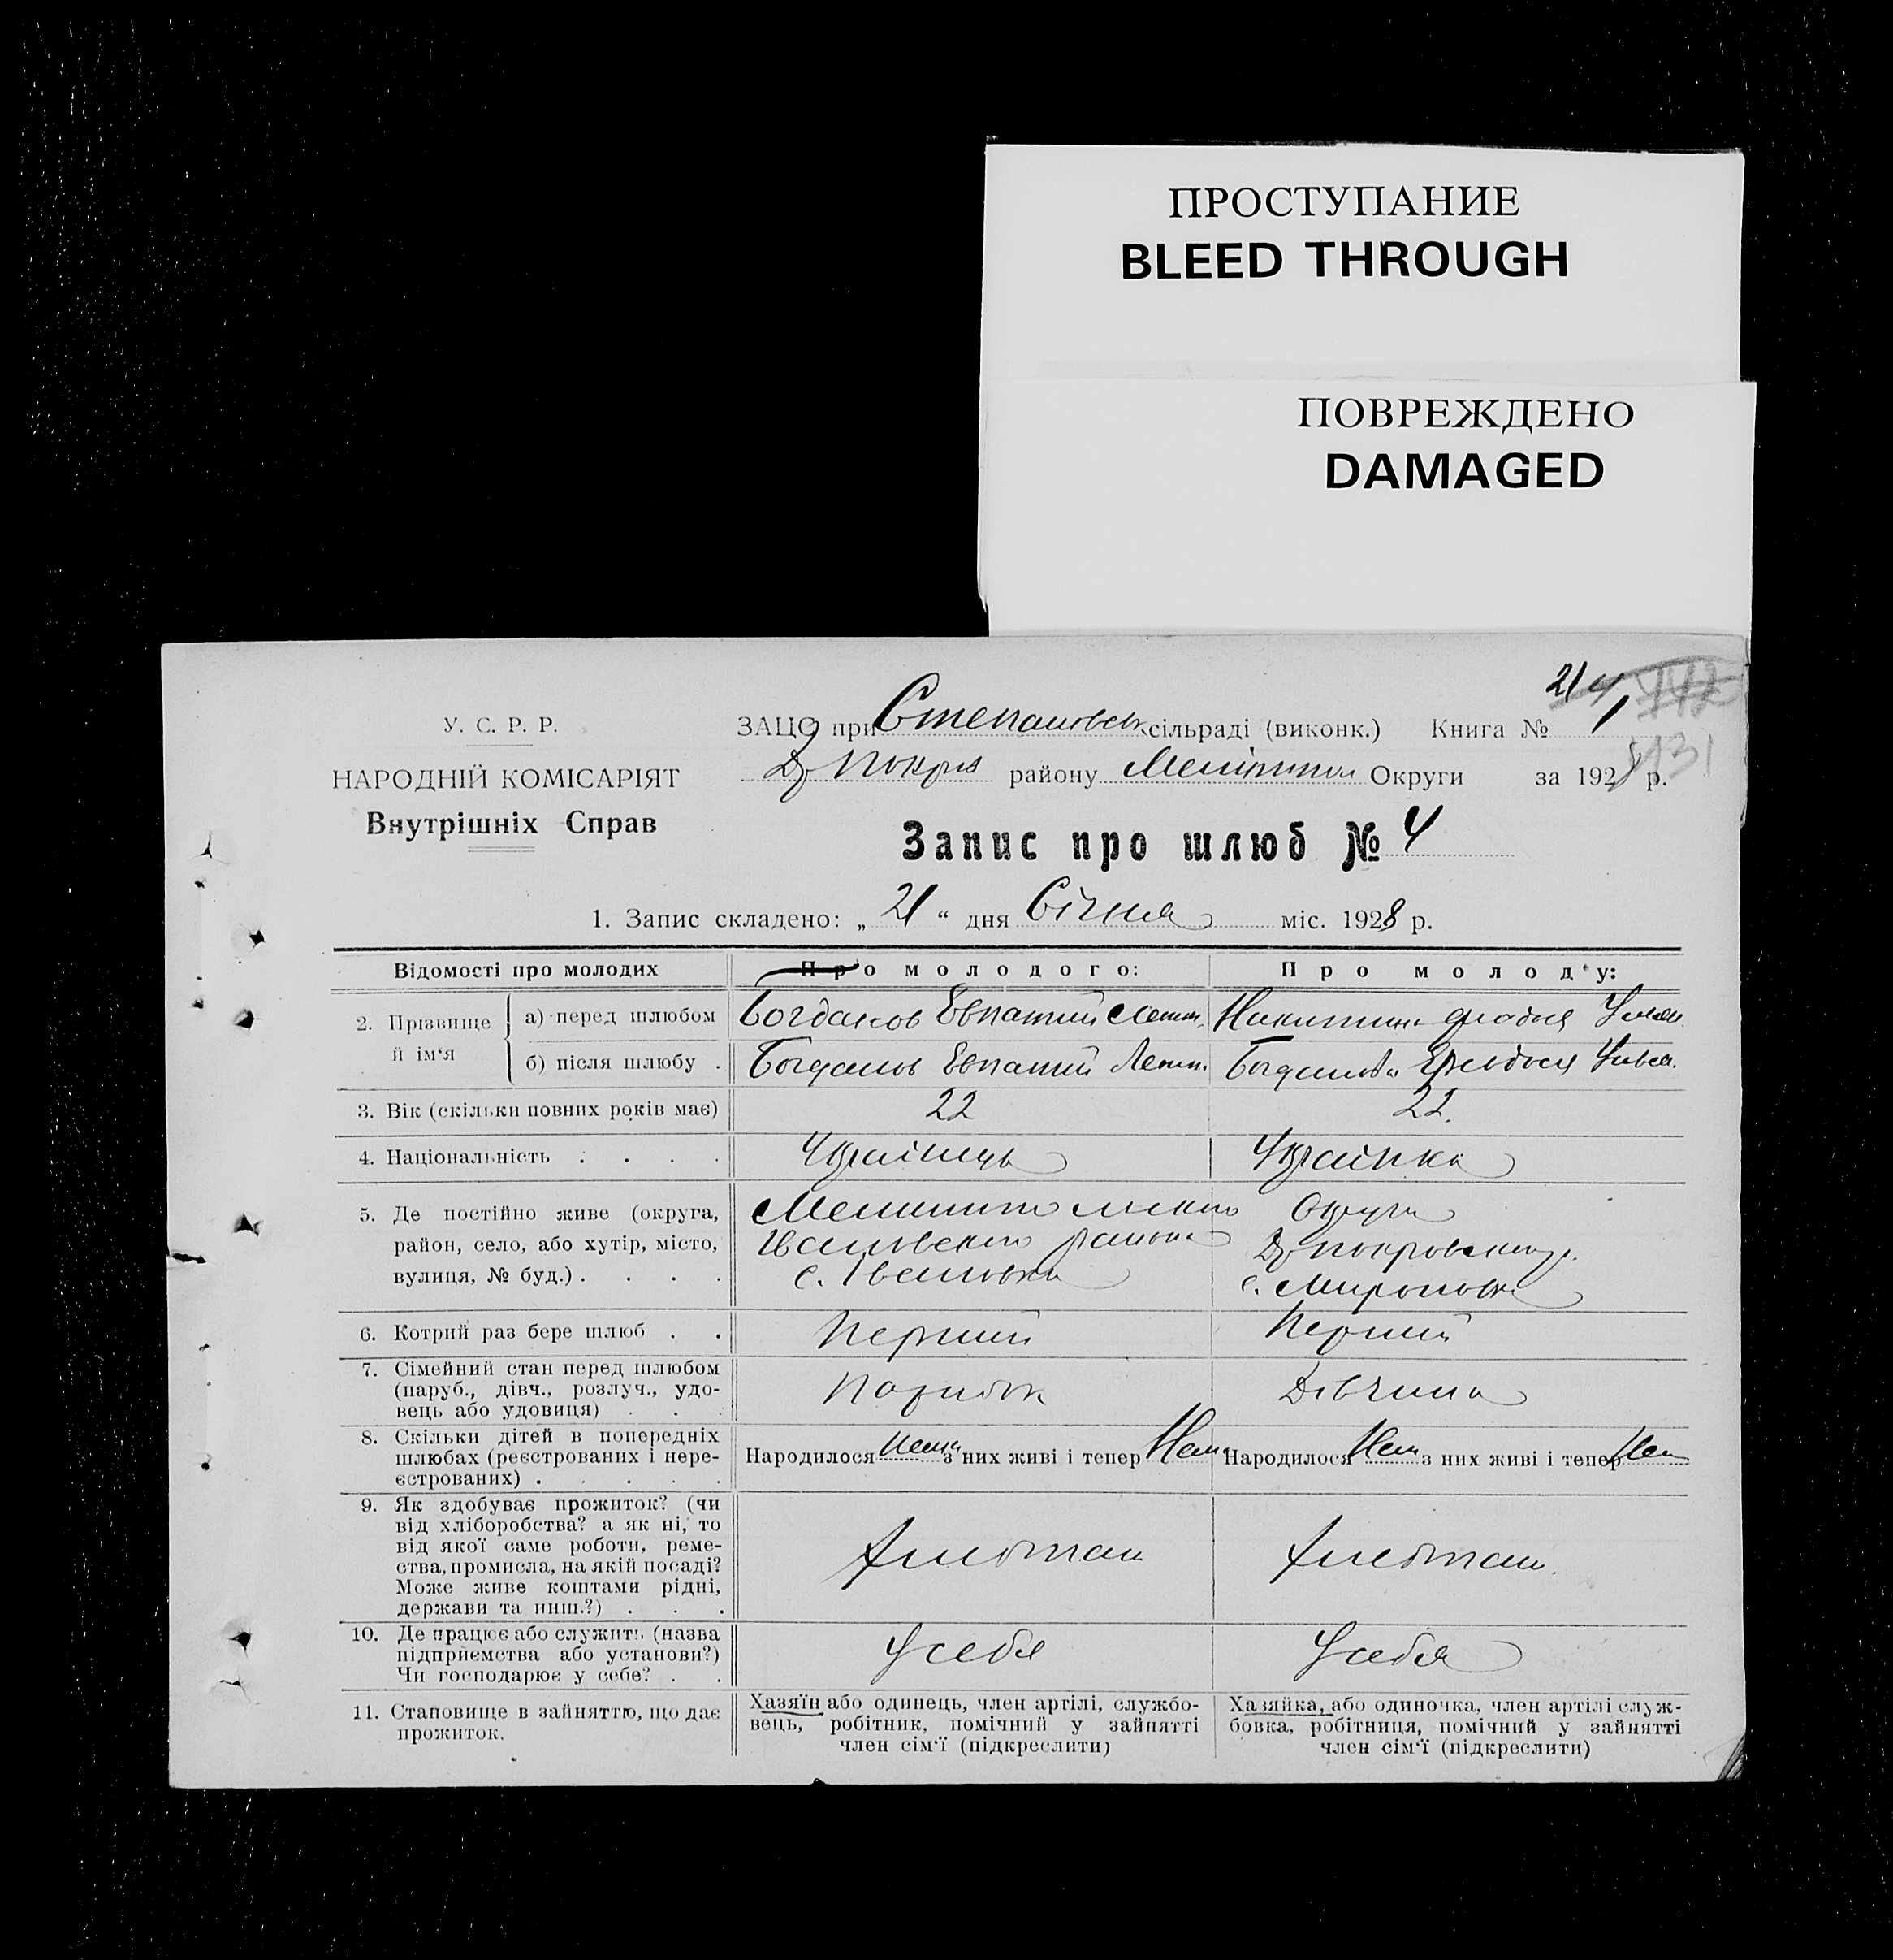 ПРОСТУПАНИЕ
BLEED THROUGH
ПОВРЕЖДЕНО
DAMAGED
21 4
У. С. Р. Р.
ЗАЦС при Степановськ сільраді (виконк.) Книга № 1
НАРОДНІЙ КОМІСАРІЯТ
Покров району Мелітопол Округи за 1928 р.
131
Внутрішніх Справ
Запис про шлюб № 4
1. Запис складено: „ 21 “ дня Січня міс. 1928 р.
Відомості про молодих
Про молодого:
Про молоду:
2. Прізвище й ім‘я
а) перед шлюбом
Богданов Евпатий
Никитина
б) після шлюбу .
Богданов Евпатий
Богданова
3. Вік (скільки повних років має)
22
22.
4. Національність . . . .
Українець
Українка
5. Де постійно живе (округа,
район, село, або хутір, місто,
вулиця, № буд.) . . . .
Округи
Ивановского района
с. Івановка
Покровского р.
с. Мироновка
6. Котрий раз бере шлюб . .
Перший
Перший
7. Сімейний стан перед шлюбом
(паруб., дівч., розлуч., удо-
вець або удовиця) . . .
Парубок
Дівчина
8. Скільки дітей в попередніх
шлюбах (реєстрованих і нере-
єстрованих) . . . . .
Народилося нема з них живі і тепер Нема
Народилося Нема з них живі і тепер Нема
9. Як здобуває прожиток? (чи
від хліборобства? а як ні, то
від якої саме роботи, реме-
ства, промисла, на якій посаді?
Може живе коштами рідні,
держави та инш.?) . . .
10. Де працює або служить (назва
підприємства або установи?)
Чи господарює у себе? . .
У себе
У себя
11. Становище в зайняттю, що дає
прожиток.
Хазяїн або одинець, член артілі, службо-
вець, робітник, помічний у зайнятті
член сім‘ї (підкреслити)
Хазяйка, або одиночка, член артілі служ-
бовка, робітниця, помічний у зайнятті
член сім‘ї (підкреслити)